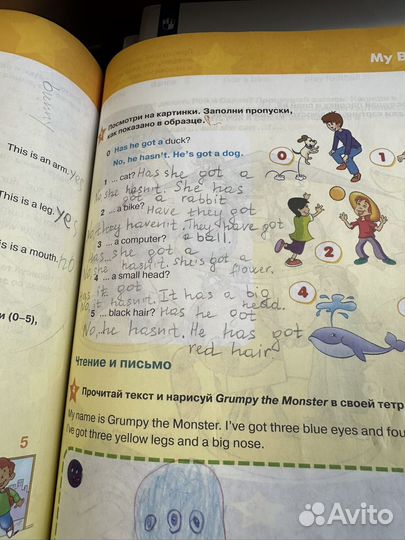 My B
Посмотри на картинки. Заполни пропуски,
как показано в образце.
0 Has he got a duck?
No, he hasn't. He's got a dog.
1 ... cat? Has she got a
No she hasn't. She has
got a rabbit
2 ... a bike? Have they got
No, they haven't. They have got
a ball.
3 ... a computer?
Has she got a
No she hasn't. she is got a
flower.
4 ... a small head?
Has it got
No it hasn't. It has a big
head.
5 ... black hair? Has he got
No, he hasn't. He has got
red hair
0
1
2
4
bunny
This is an arm. yes
This is a leg. yes
is is a mouth. no
и (0–5),
5
Чтение и письмо
Прочитай текст и нарисуй Grumpy the Monster в своей тетр
My name is Grumpy the Monster. I've got three blue eyes and fou
I've got three yellow legs and a big nose.
Avito